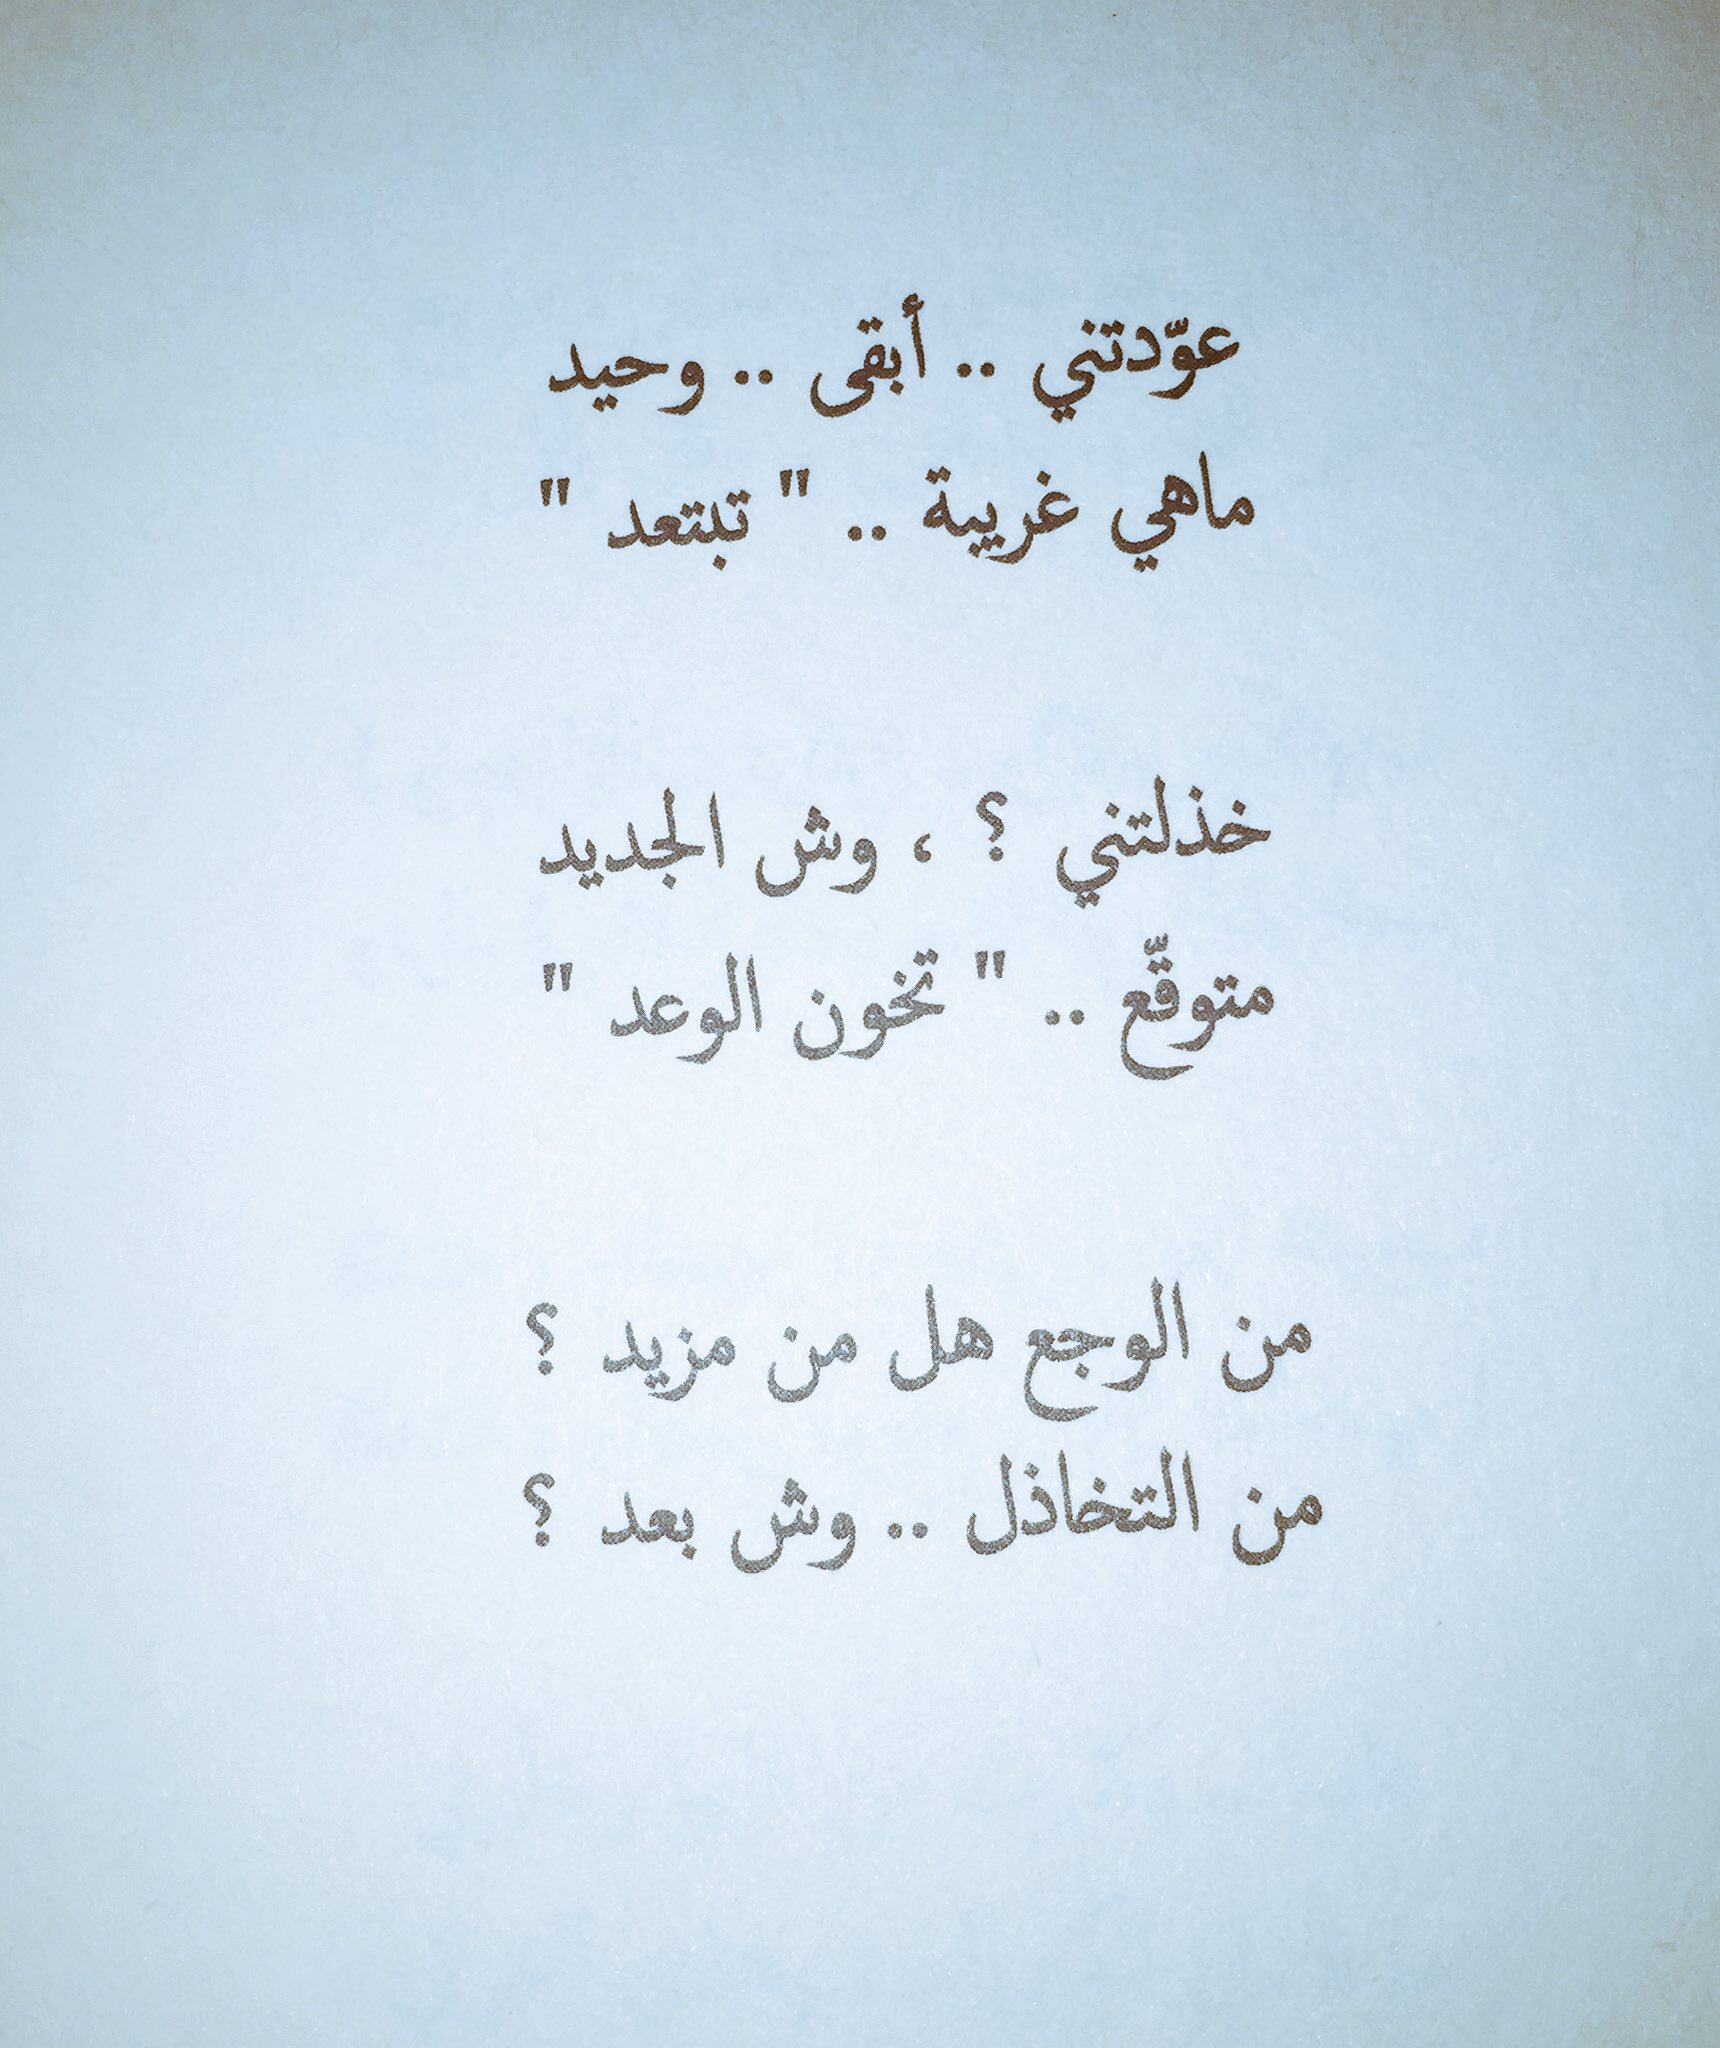 عوّدتني .. أبقى .. وحيد
ماهي غريبة .. " تبتعد "
خذلتني ؟ ، وش الجديد
متوقّع .. " تخون الوعد "
من الوجع هل من مزيد ؟
من التخاذل .. وش بعد ؟